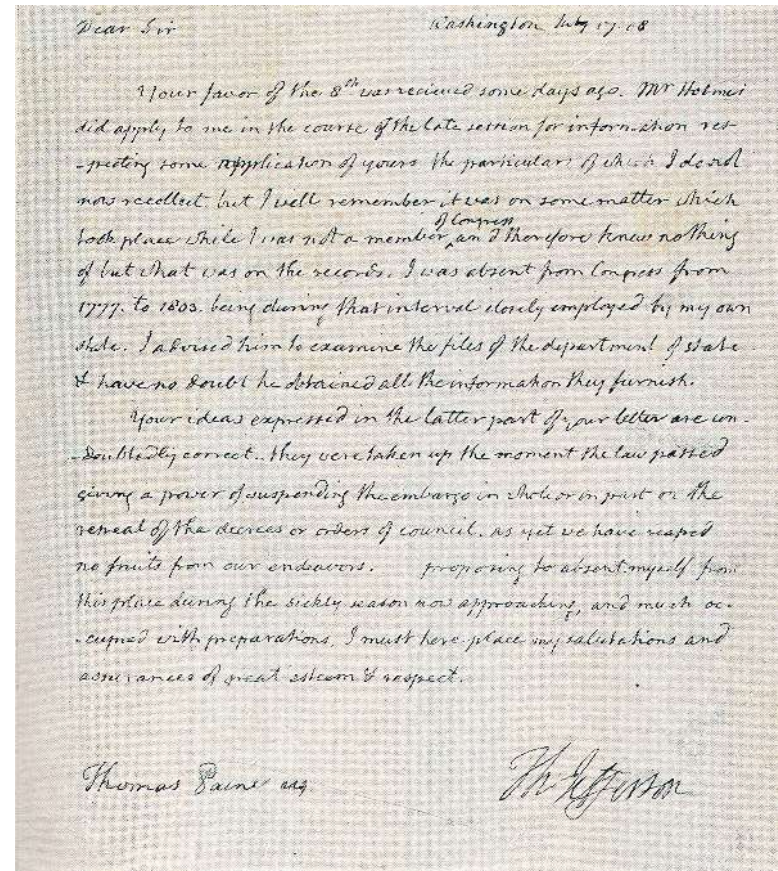 Dear Sir Washington July 17. 08
Your favor of the 8th was recieved some days ago. Mr Holmes
did apply to me in the course of the late session for information res-
-pecting some application of yours the particulars of which I do not
now recollect but I well remember it was on some matter which
of Congress
took place while I was not a member, and therefore knew nothing
of but what was on the records. I was absent from Congress from
1777. to 1803. being during that interval closely employed by my own
state. I advised him to examine the files of the department of state
& have no doubt he obtained all the information they furnish.
Your ideas expressed in the latter part of your letter are un-
-doubtedly correct. they were taken up the moment the law passed
giving a power of suspending the embargo in whole or in part on the
repeal of the decrees or orders of council. as yet we have reaped
no fruits from our endeavors. proposing to absent myself from
this place during the sickly season now approaching, and much oc-
-cupied with preparations, I must here place my salutations and
assurances of great esteem & respect.
Thomas Paine esq. Th Jefferson